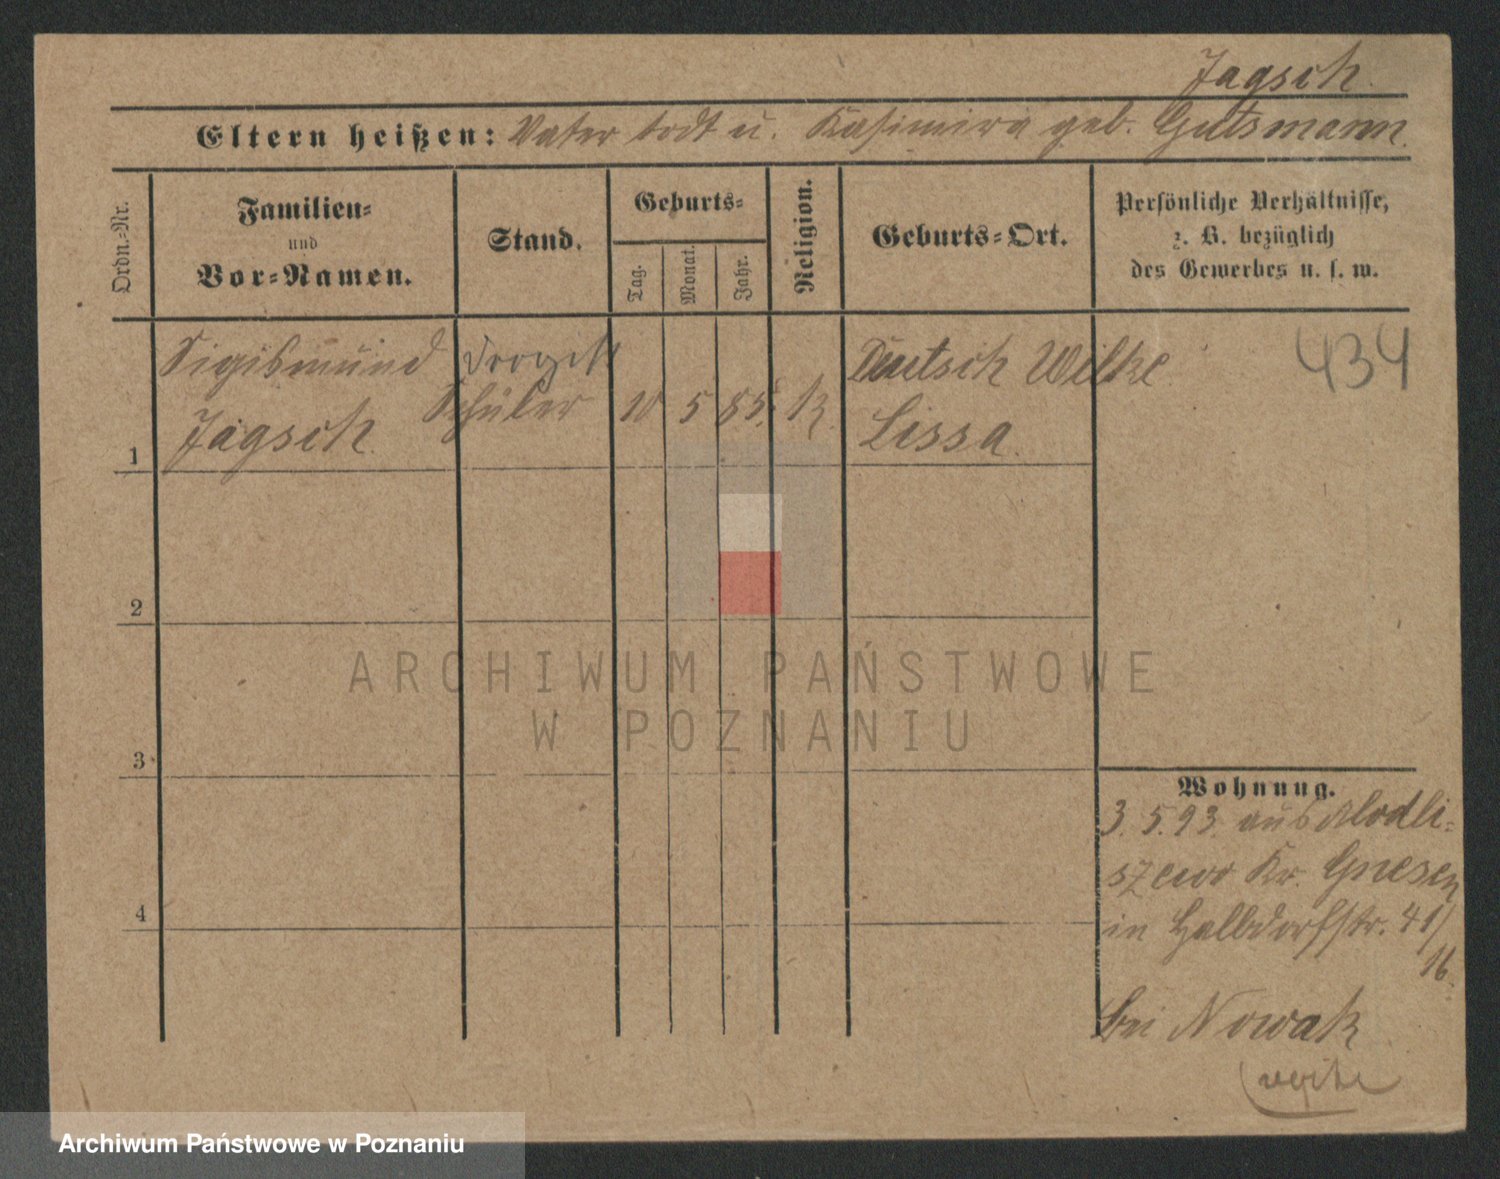 Jagsch.
Eltern heißen: Vater todt u. Kasimira geb. Gutsmann.
Ordn.-Nr.
Familien-
und
Vor-Namen.
Stand.
Geburts-
Tag.
Monat.
Jahr.
Religion.
Geburts-Ort.
Persönliche Verhältnisse,
z. B. bezüglich
des Gewerbes u. s. w.
Sigismund
Drogist
Deutsch Wilke
434
1
Jagsch.
Schüler
10
5
85.
K.
Lissa.
2
3
4
ARCHIWUM PAŃSTWOWE
W POZNANIU
Wohnung.
3. 5. 93. aus Modli-
szewo Kr. Gnesen
in Halbdorfstr. 41/
16.
bei Nowak
Archiwum Państwowe w Poznaniu